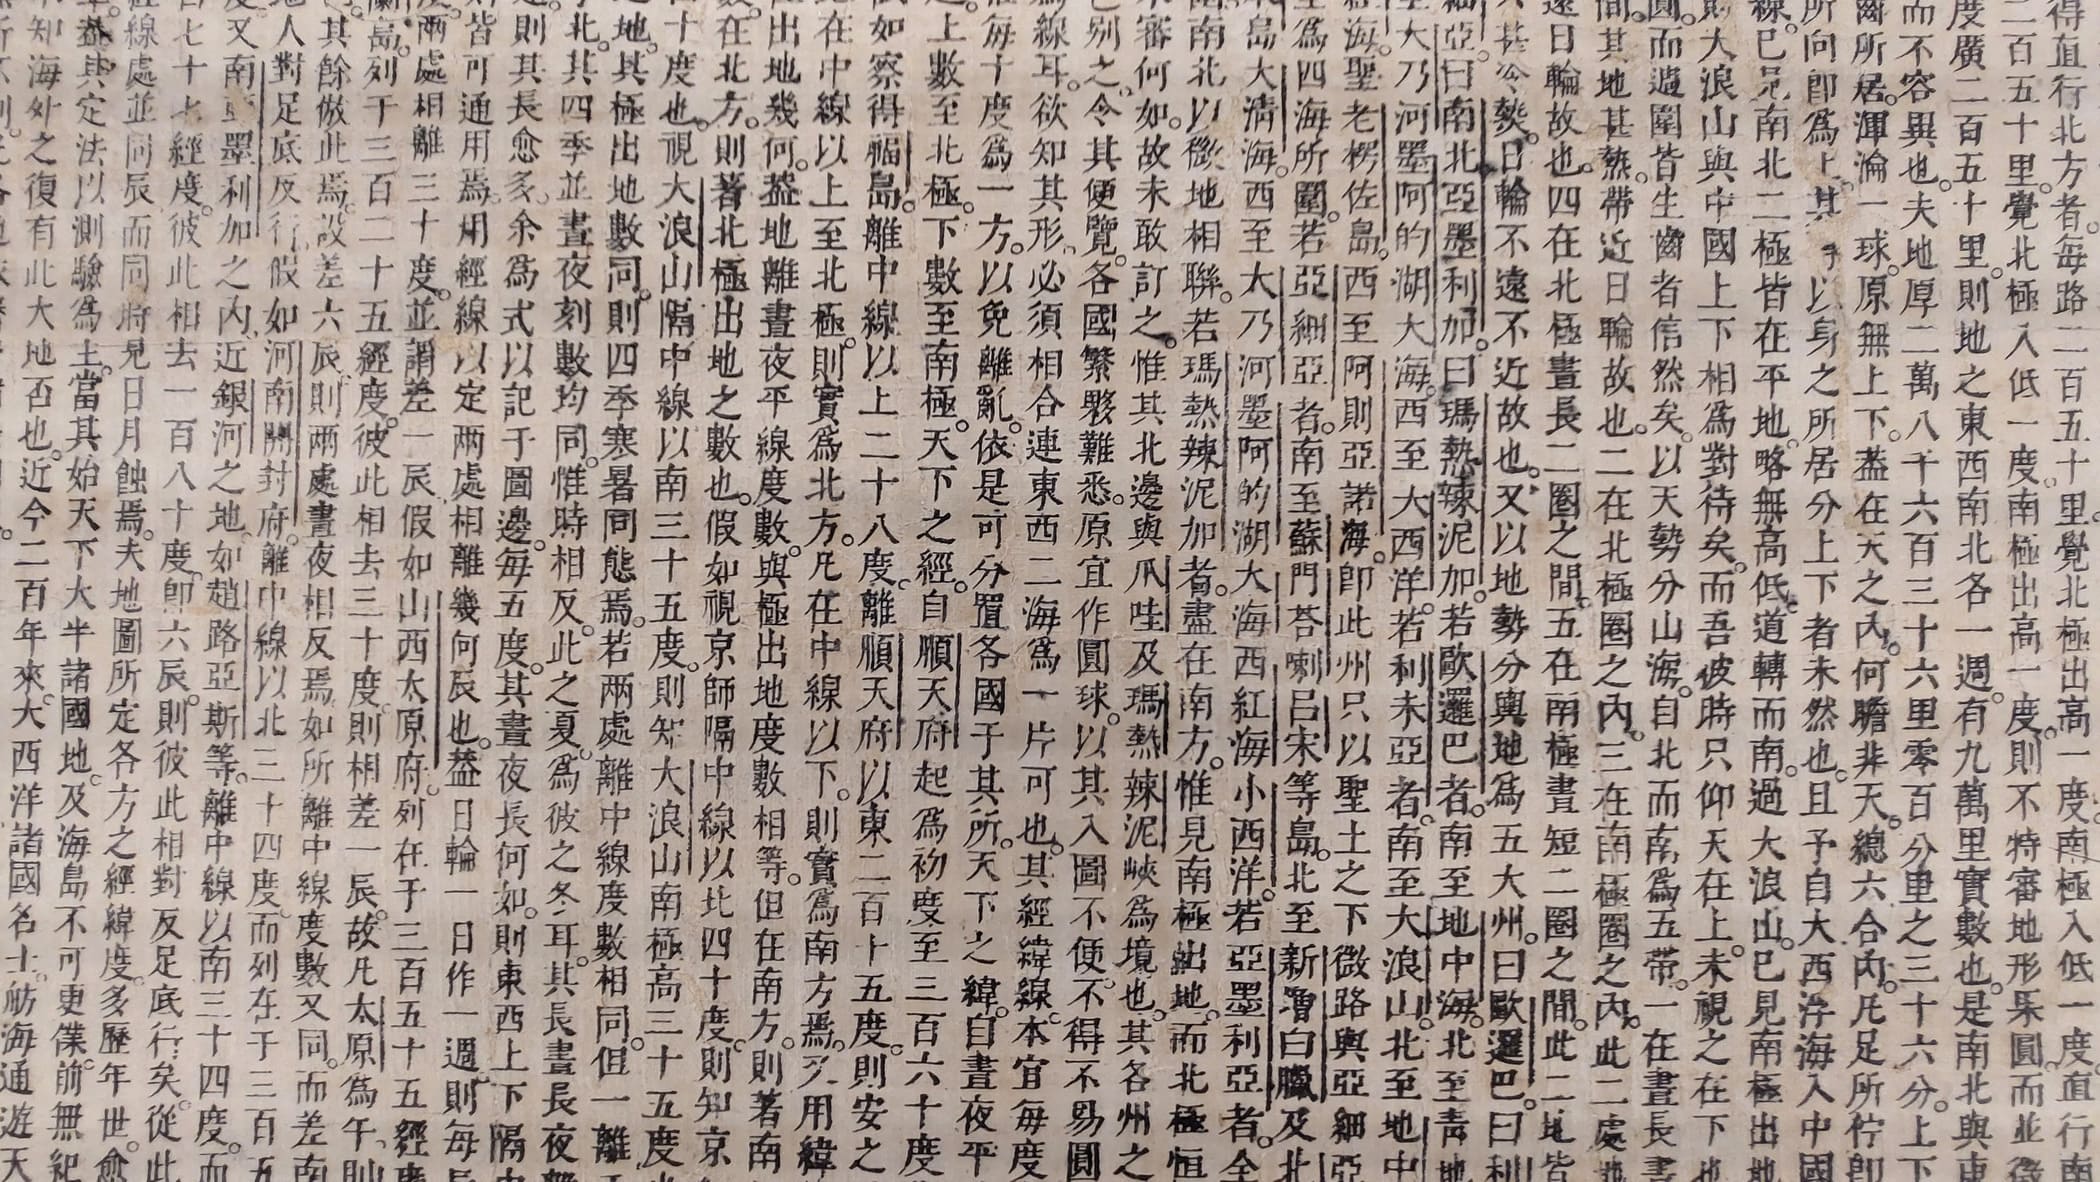 得直行北方者。每路二百五十里覺北極出高一度南極入低一度直行南
二百五十里。覺北極入低一度。南極出高一度。則不特審地形果圓而並徵
度廣二百五十里。則地之東西南北各一週。有九萬里實數也。是南北與東
而不容異也。夫地厚二萬八千六百三十六里零百分里之三十六分。上下
齒所居。渾淪一球。原無上下。葢在天之內。何瞻非天。總六合內。凡足所佇即
所向即爲上。其 以身之所居分上下者未然也。且予自大西浮海入中國
線。已見南北二極皆在平地。略無高低。道轉而南。過大浪山。已見南極出地
則大浪山與中國上下相爲對待矣。而吾彼時只仰天在上。未視之在下也
圓。而週圍皆生齒者信然矣。以天勢分山海。自北而南爲五帶。一在晝長晝
間。其地甚熱。帶近日輪故也。二在北極圈之內。三在南極圈之內。此二處地
遠日輪故也。四在北極晝長二圈之間。五在南極晝短二圈之間。此二地皆
甚冷熱。日輪不遠不近故也。又以地勢分輿地爲五大州。曰歐邏巴。曰利
細亞。曰南北亞墨利加。曰瑪熱辣泥加。若歐邏巴者。南至地中海。北至靑地
至大乃河墨阿的湖大海。西至大西洋。若利未亞者。南至大浪山。北至地中
海聖老楞佐島。西至阿則亞諾海。即此州只以聖土之下微路與亞細亞
爲四海所圍。若亞細亞者。南至蘇門荅喇呂宋等島。北至新曾白臘及北
島大淸海。西至大乃河墨阿的湖大海西紅海小西洋。若亞墨利亞者。全
南北以微地相聯。若瑪熱辣泥加者。盡在南方。惟見南極出地。而北極恒
審何如。故未敢訂之。惟其北邊與爪哇及瑪熱辣泥峽爲境也。其各州之
別之。令其便覽。各國繁夥難悉。原宜作圓球。以其入圖不便。不得不易圓
線耳。欲知其形。必須相合連東西二海爲一片可也。其經緯線。本宜每度
每十度爲一方。以免雜亂。依是可分置各國于其所。天下之緯。自晝夜平
上數至北極。下數至南極。天下之經。自順天府起爲初度至三百六十度
如察得福島離中線以上二十八度。離順天府以東二百十五度。則安之
在中線以上至北極。則實爲北方。凡在中線以下。則實爲南方焉。又用緯
出地幾何。葢地離晝夜平線度數。與極出地度數相等。但在南方。則著南
在北方。則著北極出地之數也。假如視京師隔中線以北四十度。則知京
十度也。視大浪山隔中線以南三十五度。則知大浪山南極高三十五度
地。其極出地數同。則四季寒暑同態焉。若兩處離中線度數相同。但一離
北。其四季並晝夜刻數均同。惟時相反。此之夏。爲彼之冬耳。其長晝長夜
則其長愈多。余爲式以記于圖邊。每五度。其晝夜長何如。則東西上下隔
皆可通用焉。用經線以定兩處相離幾何辰也。葢日輪一日作一週。則每
兩處相離三十度。並謂差一辰假如山西太原府。列在于三百五十五經
島。列于三百二十五經度。彼此相去三十度。則相差一辰。故凡太原爲午。則
其餘倣此焉。設差六辰則兩處晝夜相反焉。如所離中線度數又同。而差南
人對足底反行。假如河南開封府。離中線以北三十四度。而列在于三百五
又南亞墨利加之內。近銀河之地。如趙路亞斯等。離中線以南三十四度。而
七十七經度。彼此相去一百八十度。即六辰。則彼此相對反足底行矣。從此
線處並同辰而同時見日月蝕焉。夫地圖所定各方之經緯度。多歷年世。愈
葢其定法以測驗爲主。當其始天下大半諸國地。及海島不可更僕。前無紀
知海外之復有此大地否也。近今二百年來。大西洋諸國名士。舫海通遊天